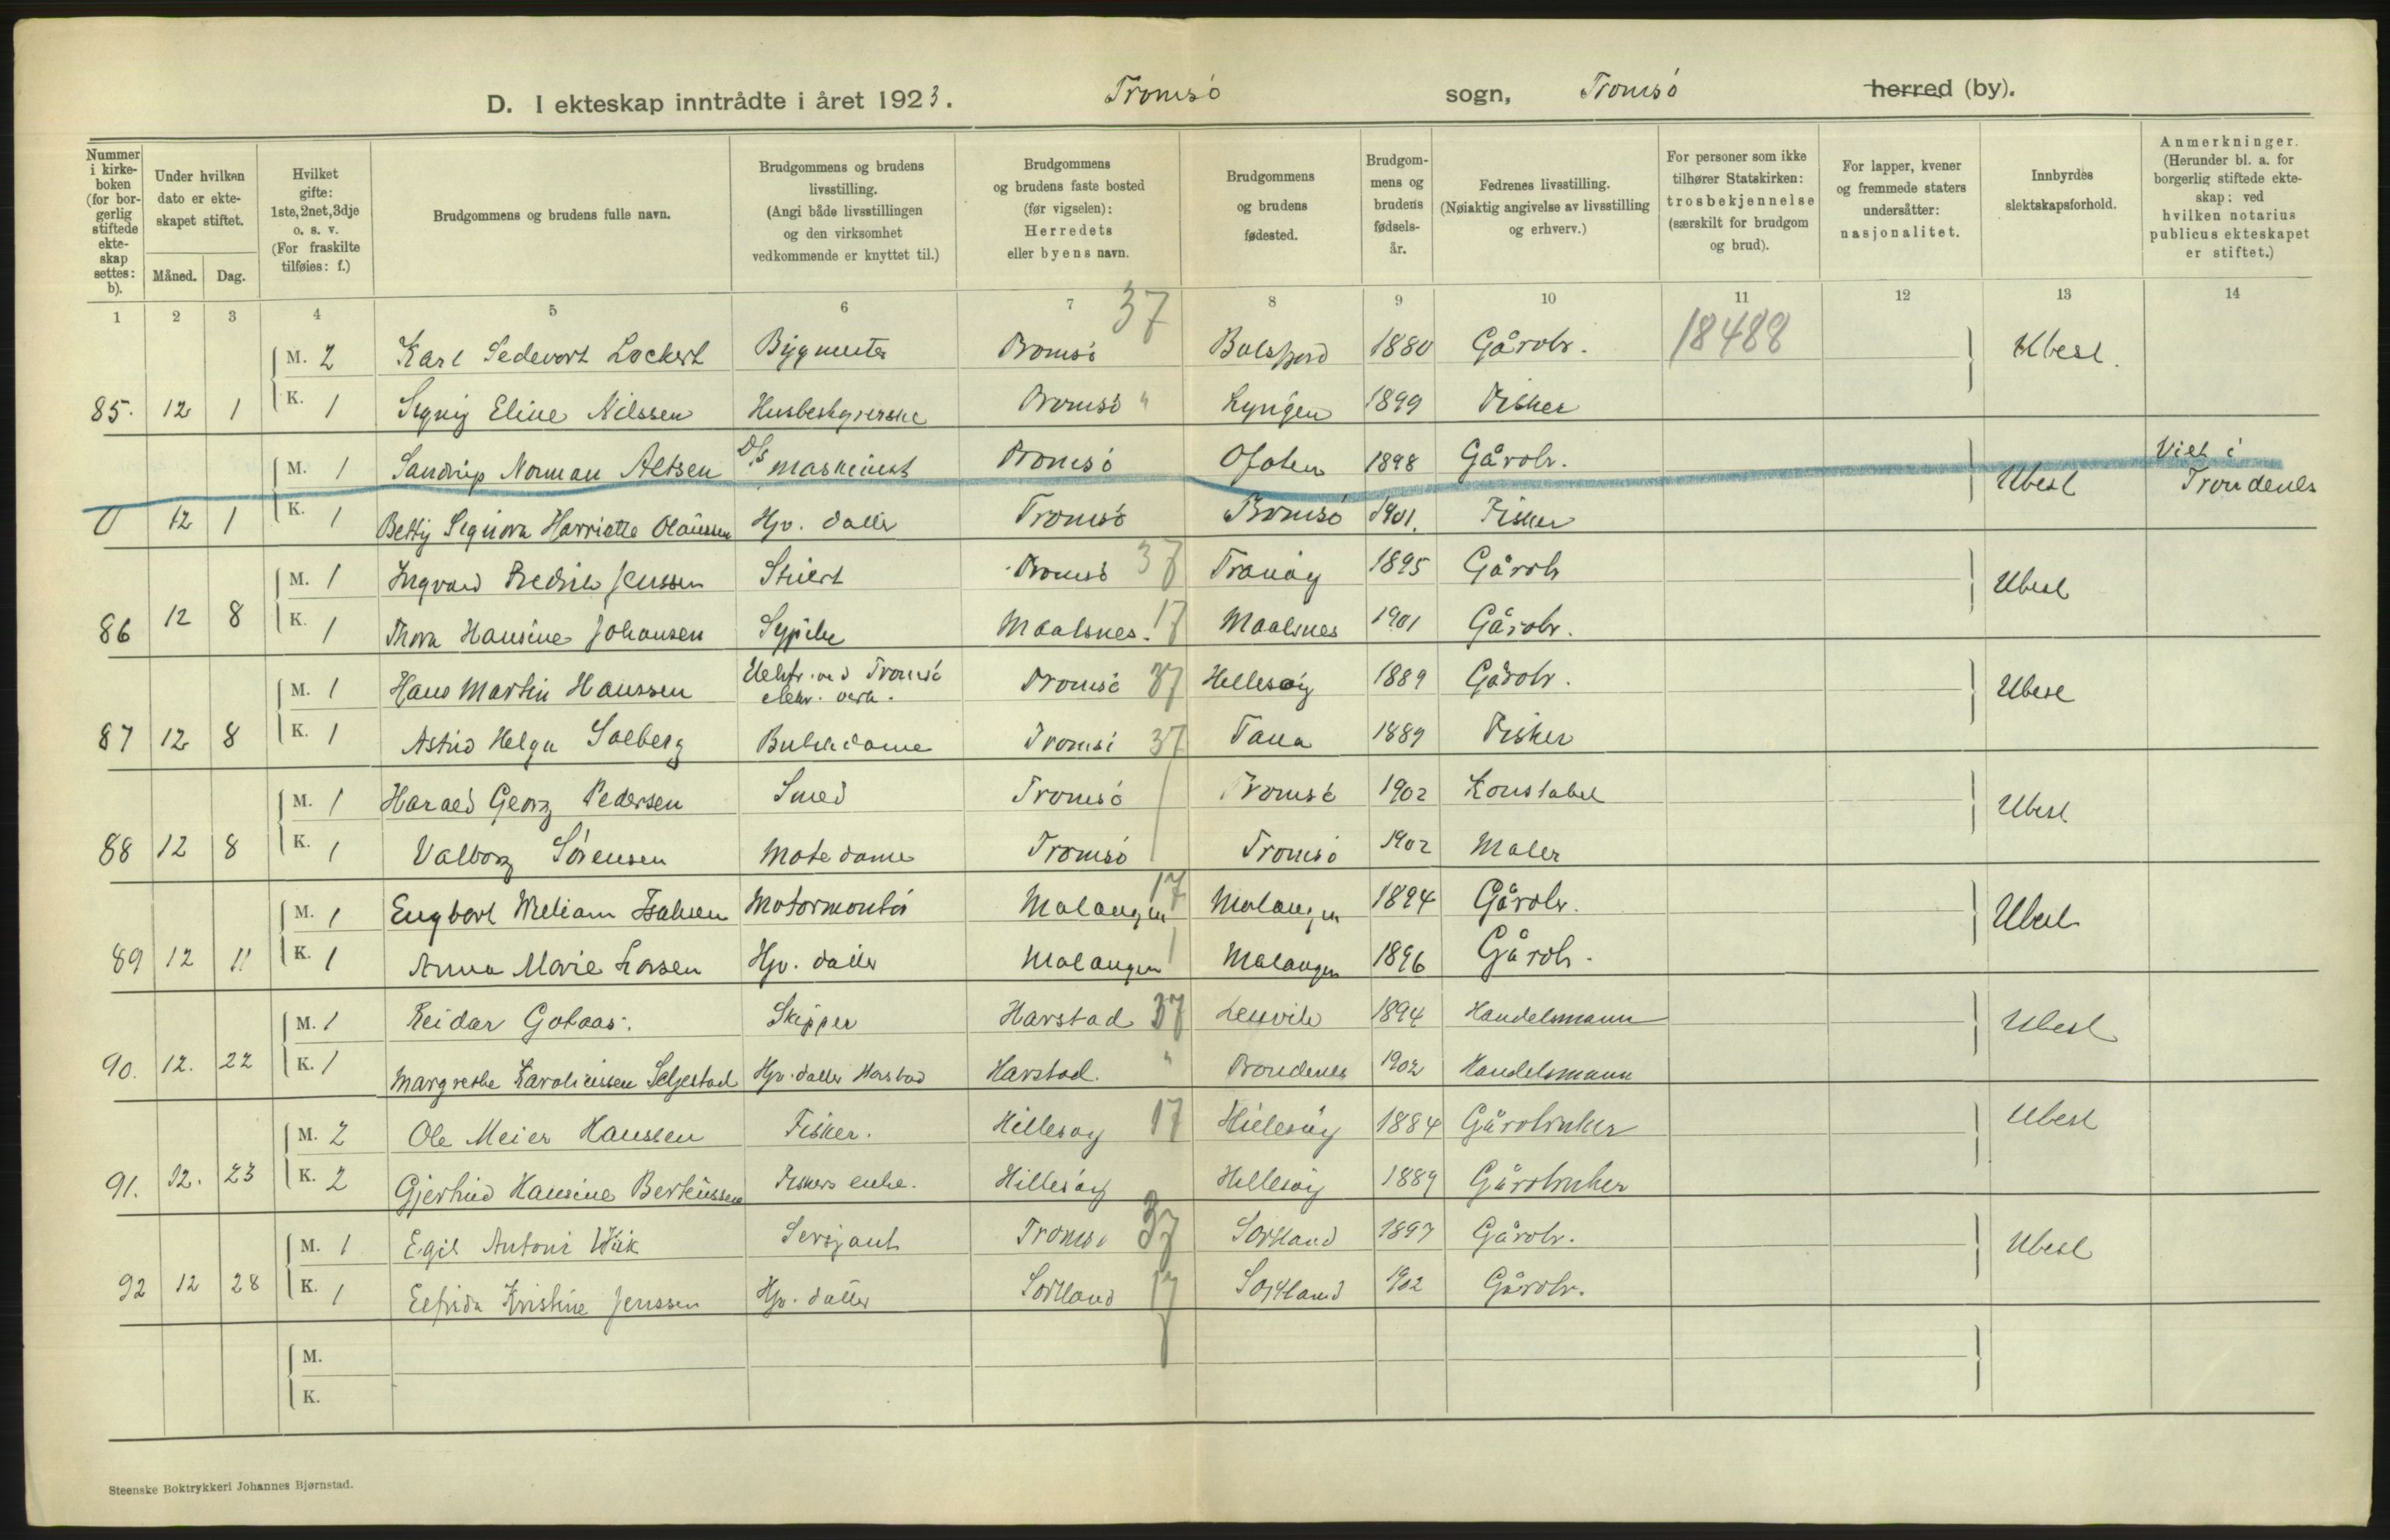 D. I ekteskap inntrådte i året 1923. Tromsö sogn, Tromsö herred (by).
Nummer i kirkeboken (for borgerlig stiftede ekteskap settes: b).
Under hvilken dato er ekteskapet stiftet.
Måned. Dag.
Hvilket gifte: 1ste, 2net, 3dje o. s. v. (For fraskilte tilføies: f.)
Brudgommens og brudens fulle navn.
Brudgommens og brudens livsstilling. (Angi både livsstillingen og den virksomhet vedkommende er knyttet til.)
Brudgommens og brudens faste bosted (før vigselen): Herredets eller byens navn.
Brudgommens og brudens fødested.
Brudgommens og brudens fødselsår.
Fedrenes livsstilling. (Nøiaktig angivelse av livsstilling og erhverv.)
For personer som ikke tilhører Statskirken: trosbekjennelse (særskilt for brudgom og brud).
For lapper, kvener og fremmede staters undersåtter: nasjonalitet.
Innbyrdes slektskapsforhold.
Anmerkninger. (Herunder bl. a. for borgerlig stiftede ekteskap: ved hvilken notarius publicus ekteskapet er stiftet.)
1 2 3 4 5 6 7 8 9 10 11 12 13 14
37
M. 2 Karl Sedevart Lockert Bygmester Tromsö Balsfjord 1880 Gårdbr. 18488 Ubesl.
85. 12 1 K. 1 Signy Eline Nilssen Husbestyrerske Tromsö " Lyngen 1899 Fisker
M. 1 Norman Altsen D/s maskinist Tromsö Ofoten 1898 Gårdbr. Ubesl Viet i Trondenes
0 12 1 K. 1 Betty Signora Harriette Olaussen Hjv. datter Tromsö Tromsö 1901. Fisker
M. 1 Ingvard Fredrik Jenssen Stuert Tromsö 37 Tranöy 1895 Gårdbr Ubesl
86 12 8 K. 1 Thora Hansine Johansen Sypike Maalsnes. 17 Maalsnes 1901 Gårdbr.
M. 1 Hans Martin Hanssen Elektr. ved Tromsö elektr. verk. Tromsö 37 Hellesöy 1889 Gårdbr. Ubesl
87 12 8 K. 1 Astrid Helga Solberg Butikdame Tromsö 37 Tana 1889 Fisker
M. 1 Harald Georg Pedersen Smed Tromsö Tromsö 1902 Konstabel Ubesl
88 12 8 K. 1 Valborg Sörensen Motedame Tromsö Tromsö 1902 Maler
M. 1 Engbart Wiliam Isaksen Motormontör Malangen 17 Malangen 1894 Gårdbr. Ubesl
89 12 11 K. 1 Anna Marie Larsen Hjv. datter Malangen Malangen 1896 Gårdbr.
M. 1 Reidar Gotaas. Skipper Harstad 37 Lenvik 1894 Handelsmann Ubesl
90. 12. 22 K. 1 Margrethe Karolinssen Seljestad Hjv. datter Harstad Harstad. " Trondenes 1902 Handelsmann
M. 2 Ole Meier Hanssen Fisker. Hillesöy 17 Hillesöy 1884 Gårdbruker Ubesl
91. 12. 23 K. 2 Gjertrud Hansine Berteussen Fiskers enke. Hillesöy Hillesöy 1889 Gårdbruker
M. 1 Egil Antoni Wiik Sersjant Tromsö 37 Sortland 1897 Gårdbr. Ubesl
92 12 28 K. 1 Elfrida Kristine Jenssen Hjv. datter Sortland 17 Sortland 1902 Gårdbr.
M.
K.
Steenske Boktrykkeri Johannes Bjørnstad.